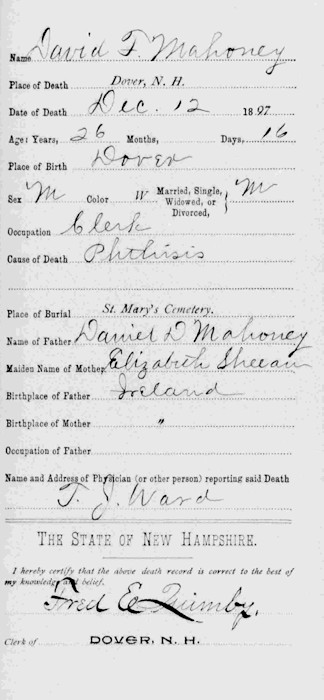 Name David F. Mahoney
Place of Death Dover, N. H.
Date of Death Dec. 12 1897
Age: Years, 26 Months, Days, 16
Place of Birth Dover
Sex M Color W Married, Single, Widowed, or Divorced, } M
Occupation Clerk
Cause of Death Phthisis
Place of Burial St. Mary's Cemetery.
Name of Father Daniel D Mahoney
Maiden Name of Mother Elizabeth Sheean
Birthplace of Father Ireland
Birthplace of Mother "
Occupation of Father
Name and Address of Physician (or other person) reporting said Death
T. J. Ward
THE STATE OF NEW HAMPSHIRE.
I hereby certify that the above death record is correct to the best of
my knowledge and belief.
Fred E Quimby,
Clerk of DOVER, N. H.